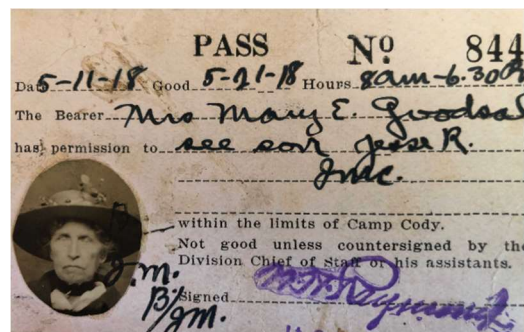 PASS No 844
Date 5-11-18 Good 5-21-18 Hours 8am-6.30P
The Bearer Mrs Mary E. Goodsa
has permission to see son Jesse R.
within the limits of Camp Cody.
Not good unless countersigned by the
Division Chief of Staff or his assistants.
J.M.
Signed
B/JM.